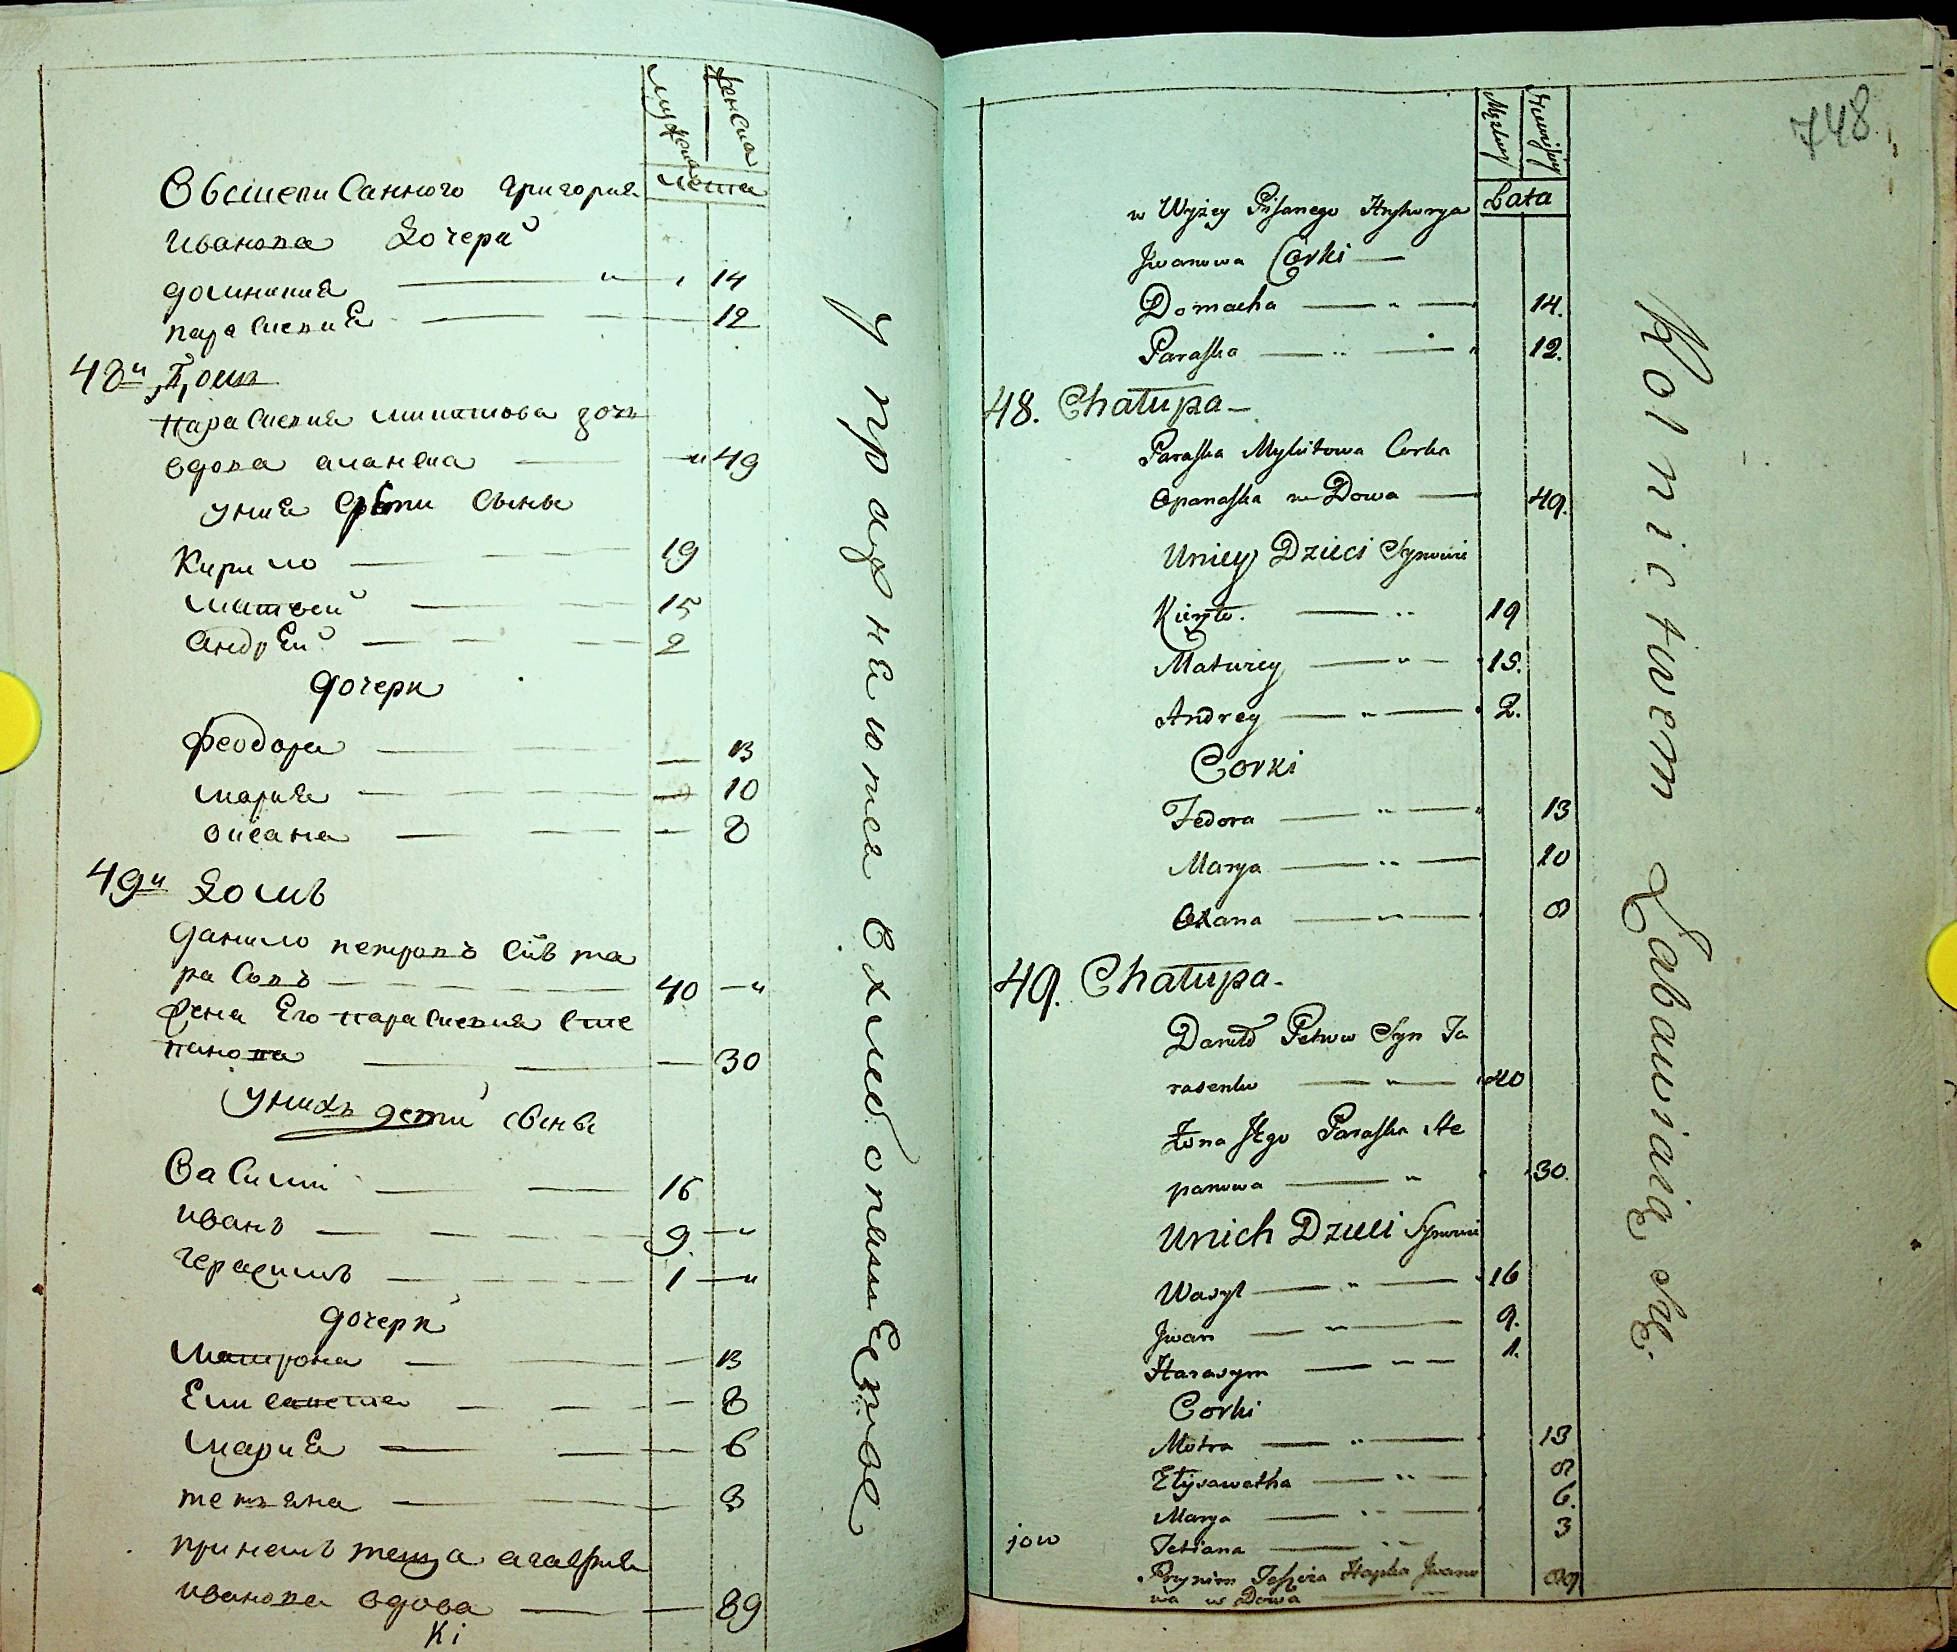 мужеска
женска
лета
Обвшеписанного григория
Иванова Дочери
домникия 14
параскевиЕ 12
48й Домъ
параскевия микитова дочь
вдова апанаса 49
уние Дѣти сыны
Кирило 19
матвей 15
андрЕй 2
дочери
феодора 13
мариЕ 10
оксана 8
49й Домъ
данило петровъ сйъ та
расовъ 40
жена Его параскевия сте
панова 30
унихъ дети сыны
Василий 16
иванъ 9
герасимъ 1
дочери
матрона 13
Елисавета 8
мариЕ 6
тетяна 3
принемъ теща агафия
иванова вдова 89
Кі
упражняются вхлебопашЕстве
748
Męzkiey
Lata
w Wyżey Pisanego Hryhorya
Jwanowa Corki
Domacha 14.
Paraska 12.
48. Chałupa
Paraska Mykitowa Corka
Opanaska w Dowa 49.
Uniey Dzieci Synowie
Kiryło. 19
Matwiey 15.
Andrey 2.
Corki
Fedora 13
Marya 10
Oxana 8
49. Chałupa
Daniło Petrow Syn Ta
rasenko 40
Żona Jego Paraska Ste
panowa 30.
Unich Dzieci Synowie
Wasyl 16
Jwan 9.
Harasym 1.
Corki
Motra 13
Elysawetha 8
Marya 6.
Tetiana 3
Prynim Teszcza Hapka Jwano
wa w Dowa 89
jow
Rolnictwem Zabawiaią się.